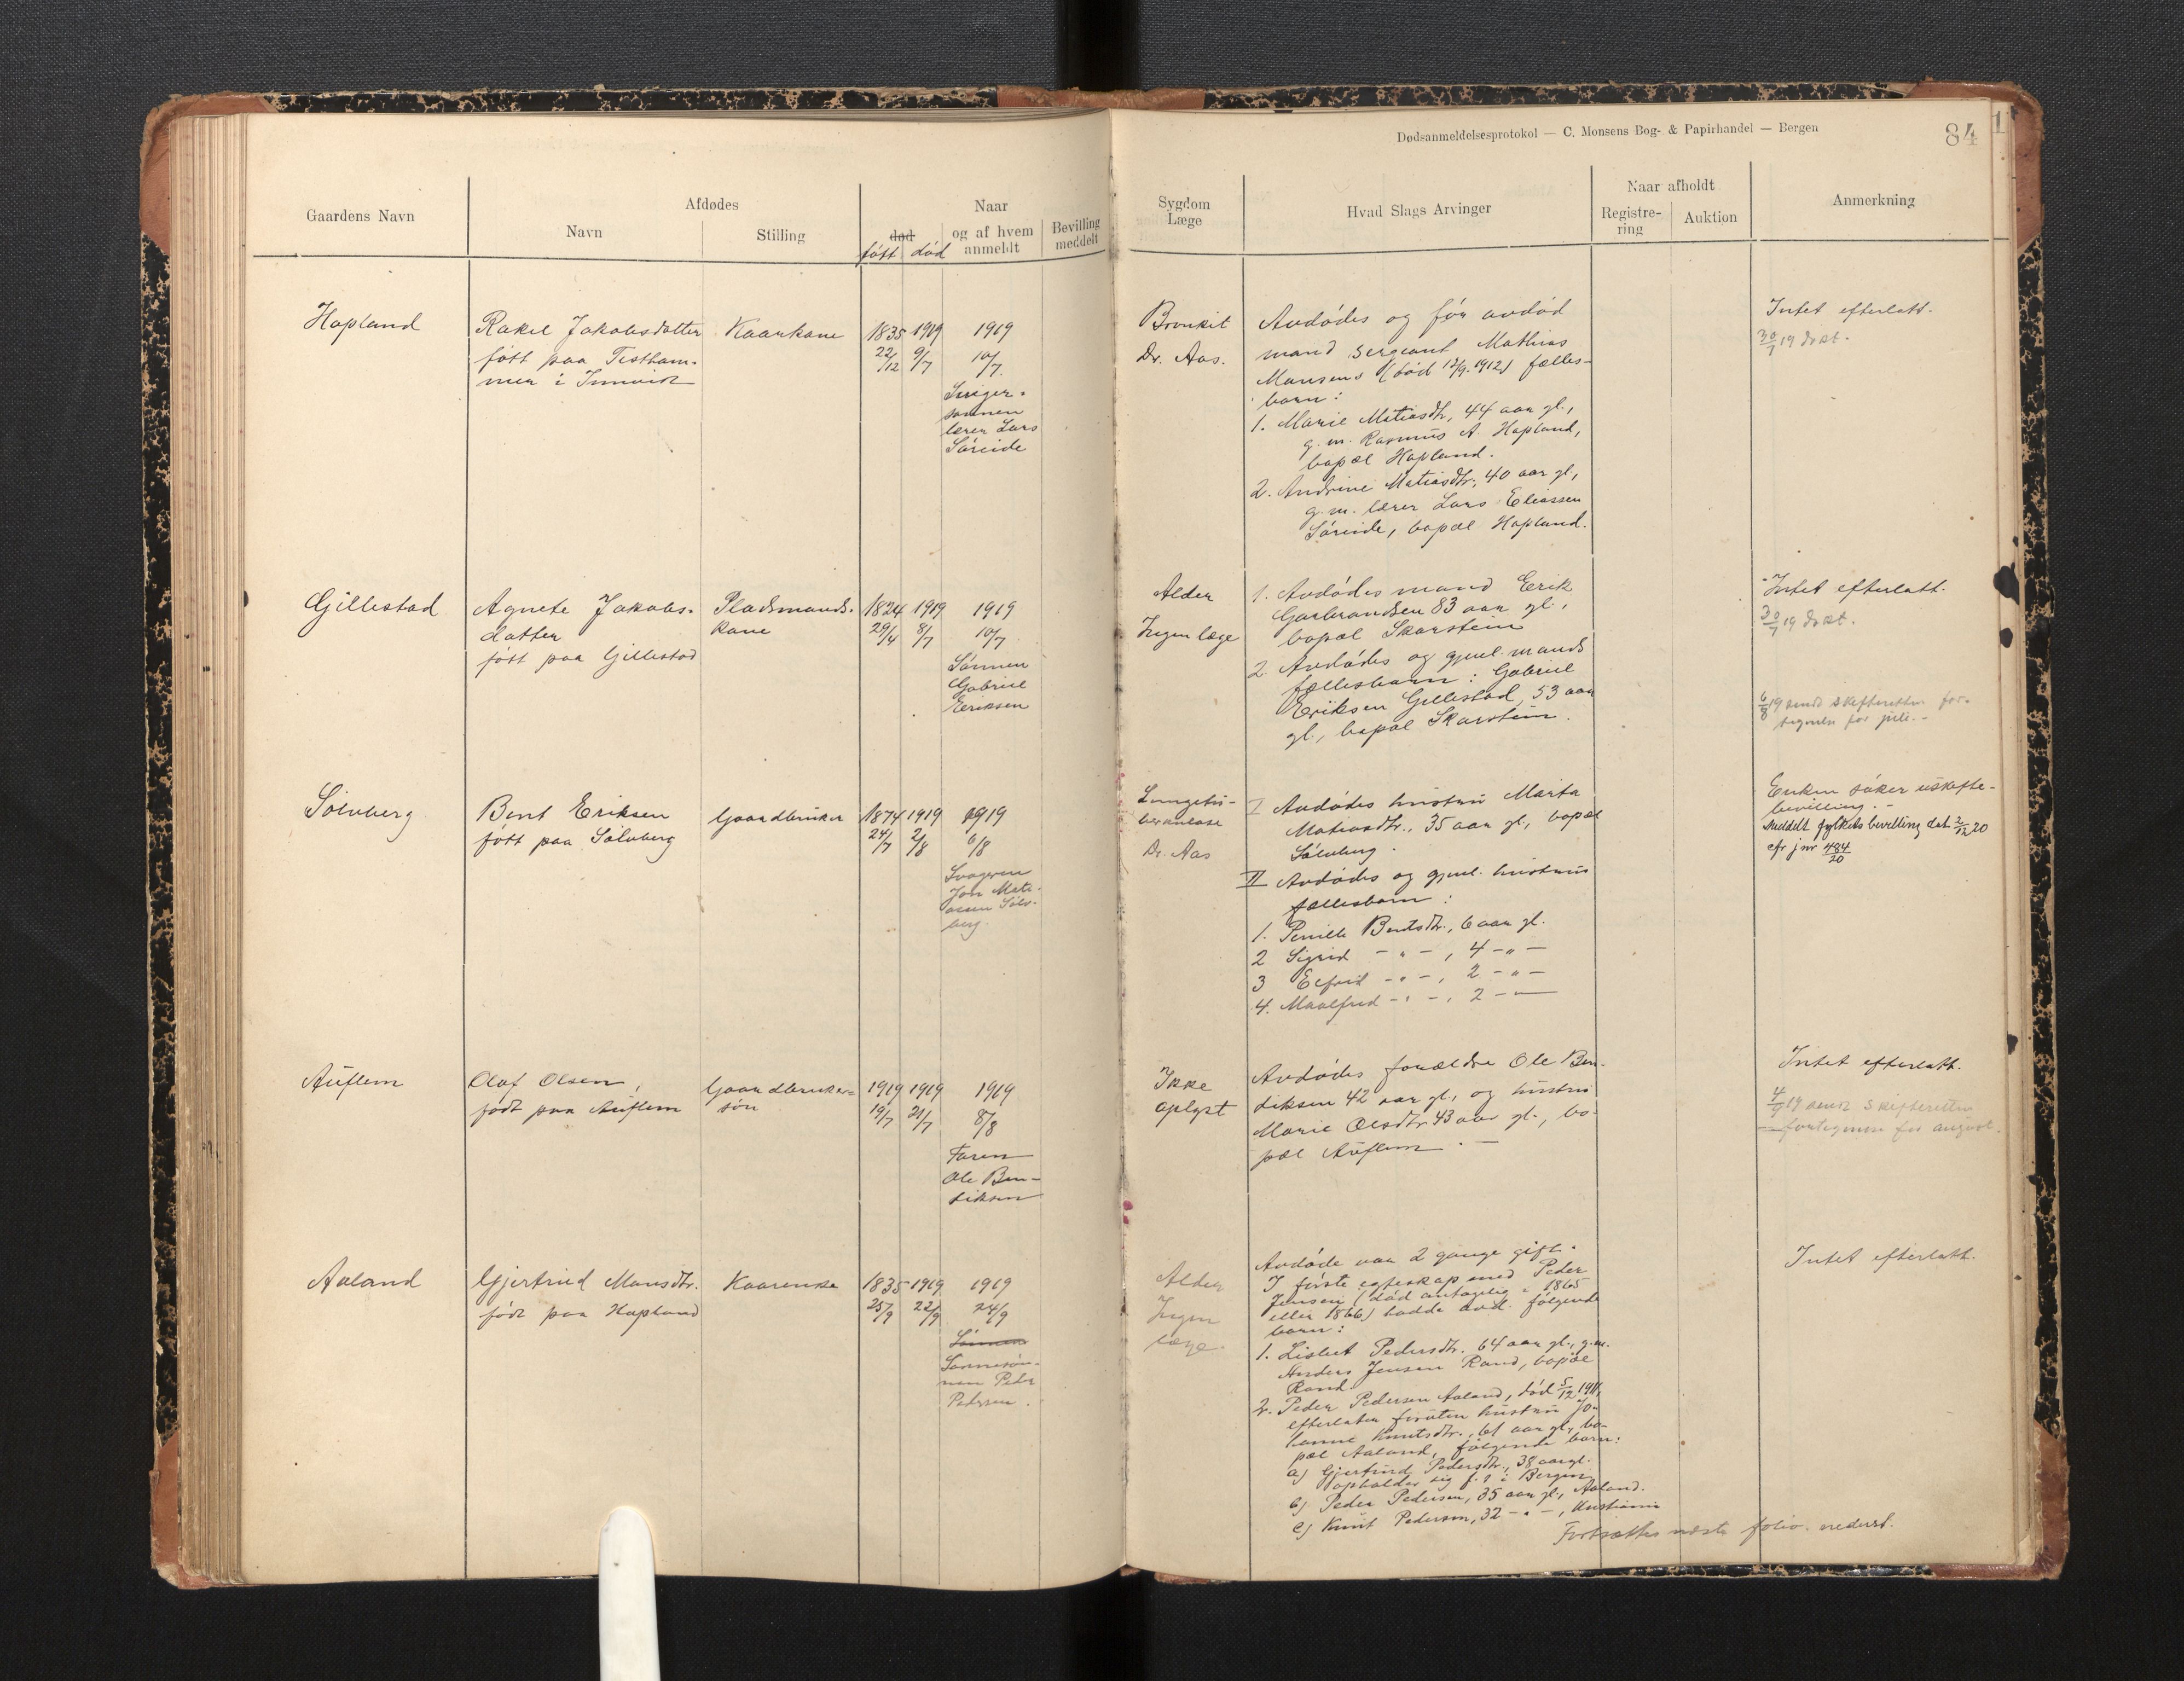 Dødsanmeldelsesprotokol — C. Monsens Bog- & Papirhandel — Bergen
84
Gaardens Navn
Afdødes
Navn
Stilling
død
født
død
Naar
og af hvem
anmeldt
Bevilling
meddelt
Sygdom
Læge
Hvad Slags Arvinger
Naar afholdt
Registre-
ring
Auktion
Anmerkning
Hopland
Rakel Jakobsdatter
født paa Tistham-
mer i Innvik
Kaarkone
1835
22/12
1919
9/7
1919
10/7
Sviger-
sønnen
lærer Lars
Søreide
Bronkit
Dr. Aas.
Avdødes og før avdød
mand sergeant Mathias
Monsens (død 12/9 1912) fælles-
barn:
1. Marie Matiasdtr, 44 aar gl.,
g. m. Rasmus A. Hopland,
bopæl Hopland.
2. Andrine Matiasdtr, 40 aar gl.,
g. m. lærer Lars Eliassen
Søreide, bopæl Hopland.
Intet efterlatt.
30/7 19
Gillestad
Agnete Jakobs-
datter
født paa Gillestad
Pladsmands-
kone
1824
29/4
1919
8/7
1919
10/7
Sønnen
Gabriel
Eeriksen
Alder
Ingen læge
1. Avdødes mand Eerik
Garbrandsen 83 aar gl.,
bopæl Skarstein
2. Avdødes og gjenl. mands
fællesbarn: Gabriel
Eriksen Gillestad, 53 aar
gl., bopæl Skarstein.
Intet efterlatt.
30/7 19
6/8 19 sendt skifteretten for-
tegnelse for juli.-
Sølvberg
Bent Eriksen
født paa Sølvberg
Gaardbruker
1874
24/7
1919
2/8
1919
6/8
Svogeren
Jon Mati-
assen Sølv-
berg
Lungetu-
berkulose
Dr. Aas
I Avdødes hustru Marta
Matiasdtr., 35 aar gl., bopæl
Sølvberg.
II Avdødes og gjenl. hustrus
fællesbarn:
1. Pernille Bentsdtr., 6 aar gl.
2 Sigrid - " - , 4 - " -
3 - " - , 2 - " -
4. Maalfrid - " - , 2 - " -
Enken søker uskifte-
bevilling.-
Meddelt fylkets bevilling dat. 2/12 20
cfr jnr 484/20
Auflem
Olaf Olsen,
født paa Auflem
Gaardbruker-
søn
1919
19/7
1919
21/7
1919
8/8
Faren
Ole Ben-
diksen
Ikke
oplyst
Avdødes forældre Ole Ben-
diksen 42 aar gl., og hustru
Marie Olsdtr. 43 aar gl., bo-
pæl Auflem.-
Intet efterlatt.
4/9 19 sendt skifteretten
fortegnelse for august.
Aaland
Gjertrud Monsdtr.
født paa Hopland
Kaarenke
1835
25/9
1919
22/9
1919
24/9
Sønnen
Sønnesøn-
nen Peder
Pedersen.
Alder
Ingen
læge.
Avdøde var 2 gange gift.
I første egteskap med Peder
Jensen (død antagelig i 1865
eller 1866) hadde avd. følgende
barn:
1. Lisbet Pedersdtr. 64 aar gl., g. m.
Anders Jensen Rand, bopæl
Rand
2. Peder Pedersen Aaland, død 5/12 1911,
efterlater foruten hustru Jo-
hanne Knutsdtr., 61 aar gl., bo-
pæl Aaland, følgende barn:
a) Gjertrud Pedersdtr., 38 aar gl.
opholder sig f. t. i Bergen
b) Peder Pedersen, 35 aar gl., Aaland.
c) Knut Pedersen, 32 - " - , Kristiania
Fortsættes næste folio. nederst.
Intet efterlatt.